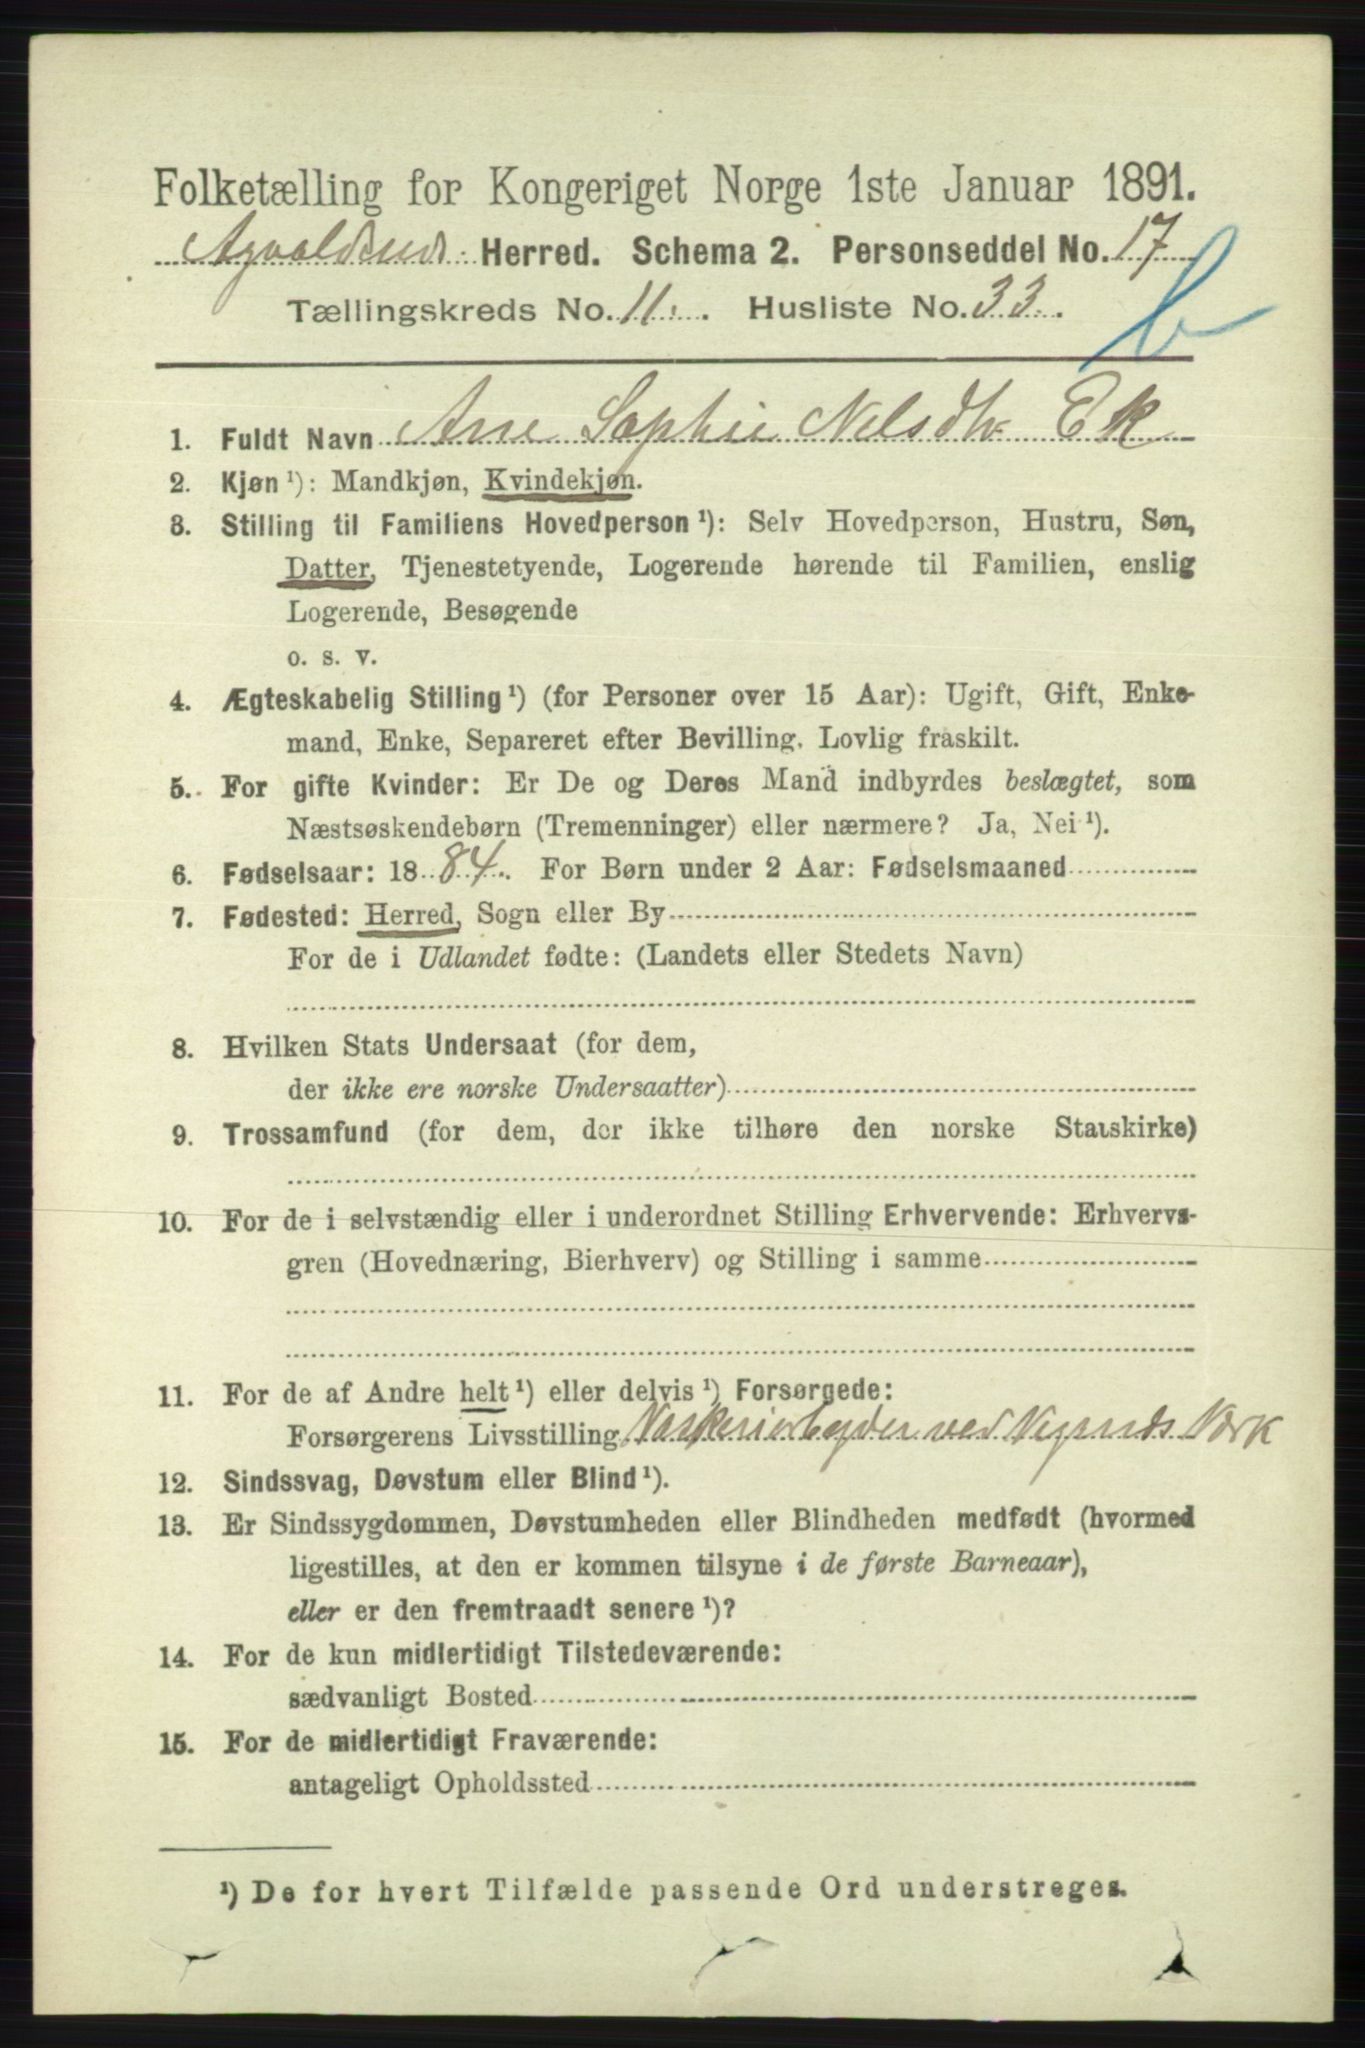 Folketælling for Kongeriget Norge 1ste Januar 1891.
Herred. Schema 2. Personseddel No. 17
Tællingskreds No. 11. Husliste No. 33.
b
1. Fuldt Navn Ane Sophie Nelsdtr Ek
2. Kjøn ¹): Mandkjøn, Kvindekjøn.
3. Stilling til Familiens Hovedperson ¹): Selv Hovedperson, Hustru, Søn,
Datter, Tjenestetyende, Logerende hørende til Familien, enslig
Logerende, Besøgende
o. s. v.
4. Ægteskabelig Stilling ¹) (for Personer over 15 Aar): Ugift, Gift, Enke-
mand, Enke, Separeret efter Bevilling. Lovlig fraskilt.
5. For gifte Kvinder: Er De og Deres Mand indbyrdes beslægtet, som
Næstsøskendebørn (Tremenninger) eller nærmere? Ja, Nei ¹).
6. Fødselsaar: 1884. For Børn under 2 Aar: Fødselsmaaned
7. Fødested: Herred, Sogn eller By
For de i Udlandet fødte: (Landets eller Stedets Navn)
8. Hvilken Stats Undersaat (for dem,
der ikke ere norske Undersaatter)
9. Trossamfund (for dem, der ikke tilhøre den norske Statskirke)
10. For de i selvstændig eller i underordnet Stilling Erhvervende: Erhvervs-
gren (Hovednæring, Bierhverv) og Stilling i samme
11. For de af Andre helt ¹) eller delvis ¹) Forsørgede:
Forsørgerens Livsstilling ved Værk
12. Sindssvag, Døvstum eller Blind ¹).
13. Er Sindssygdommen, Døvstumheden eller Blindheden medfødt (hvormed
ligestilles, at den er kommen tilsyne i de første Barneaar),
eller er den fremtraadt senere ¹)?
14. For de kun midlertidigt Tilstedeværende:
sædvanligt Bosted
15. For de midlertidigt Fraværende:
antageligt Opholdssted
¹) De for hvert Tilfælde passende Ord understreges.